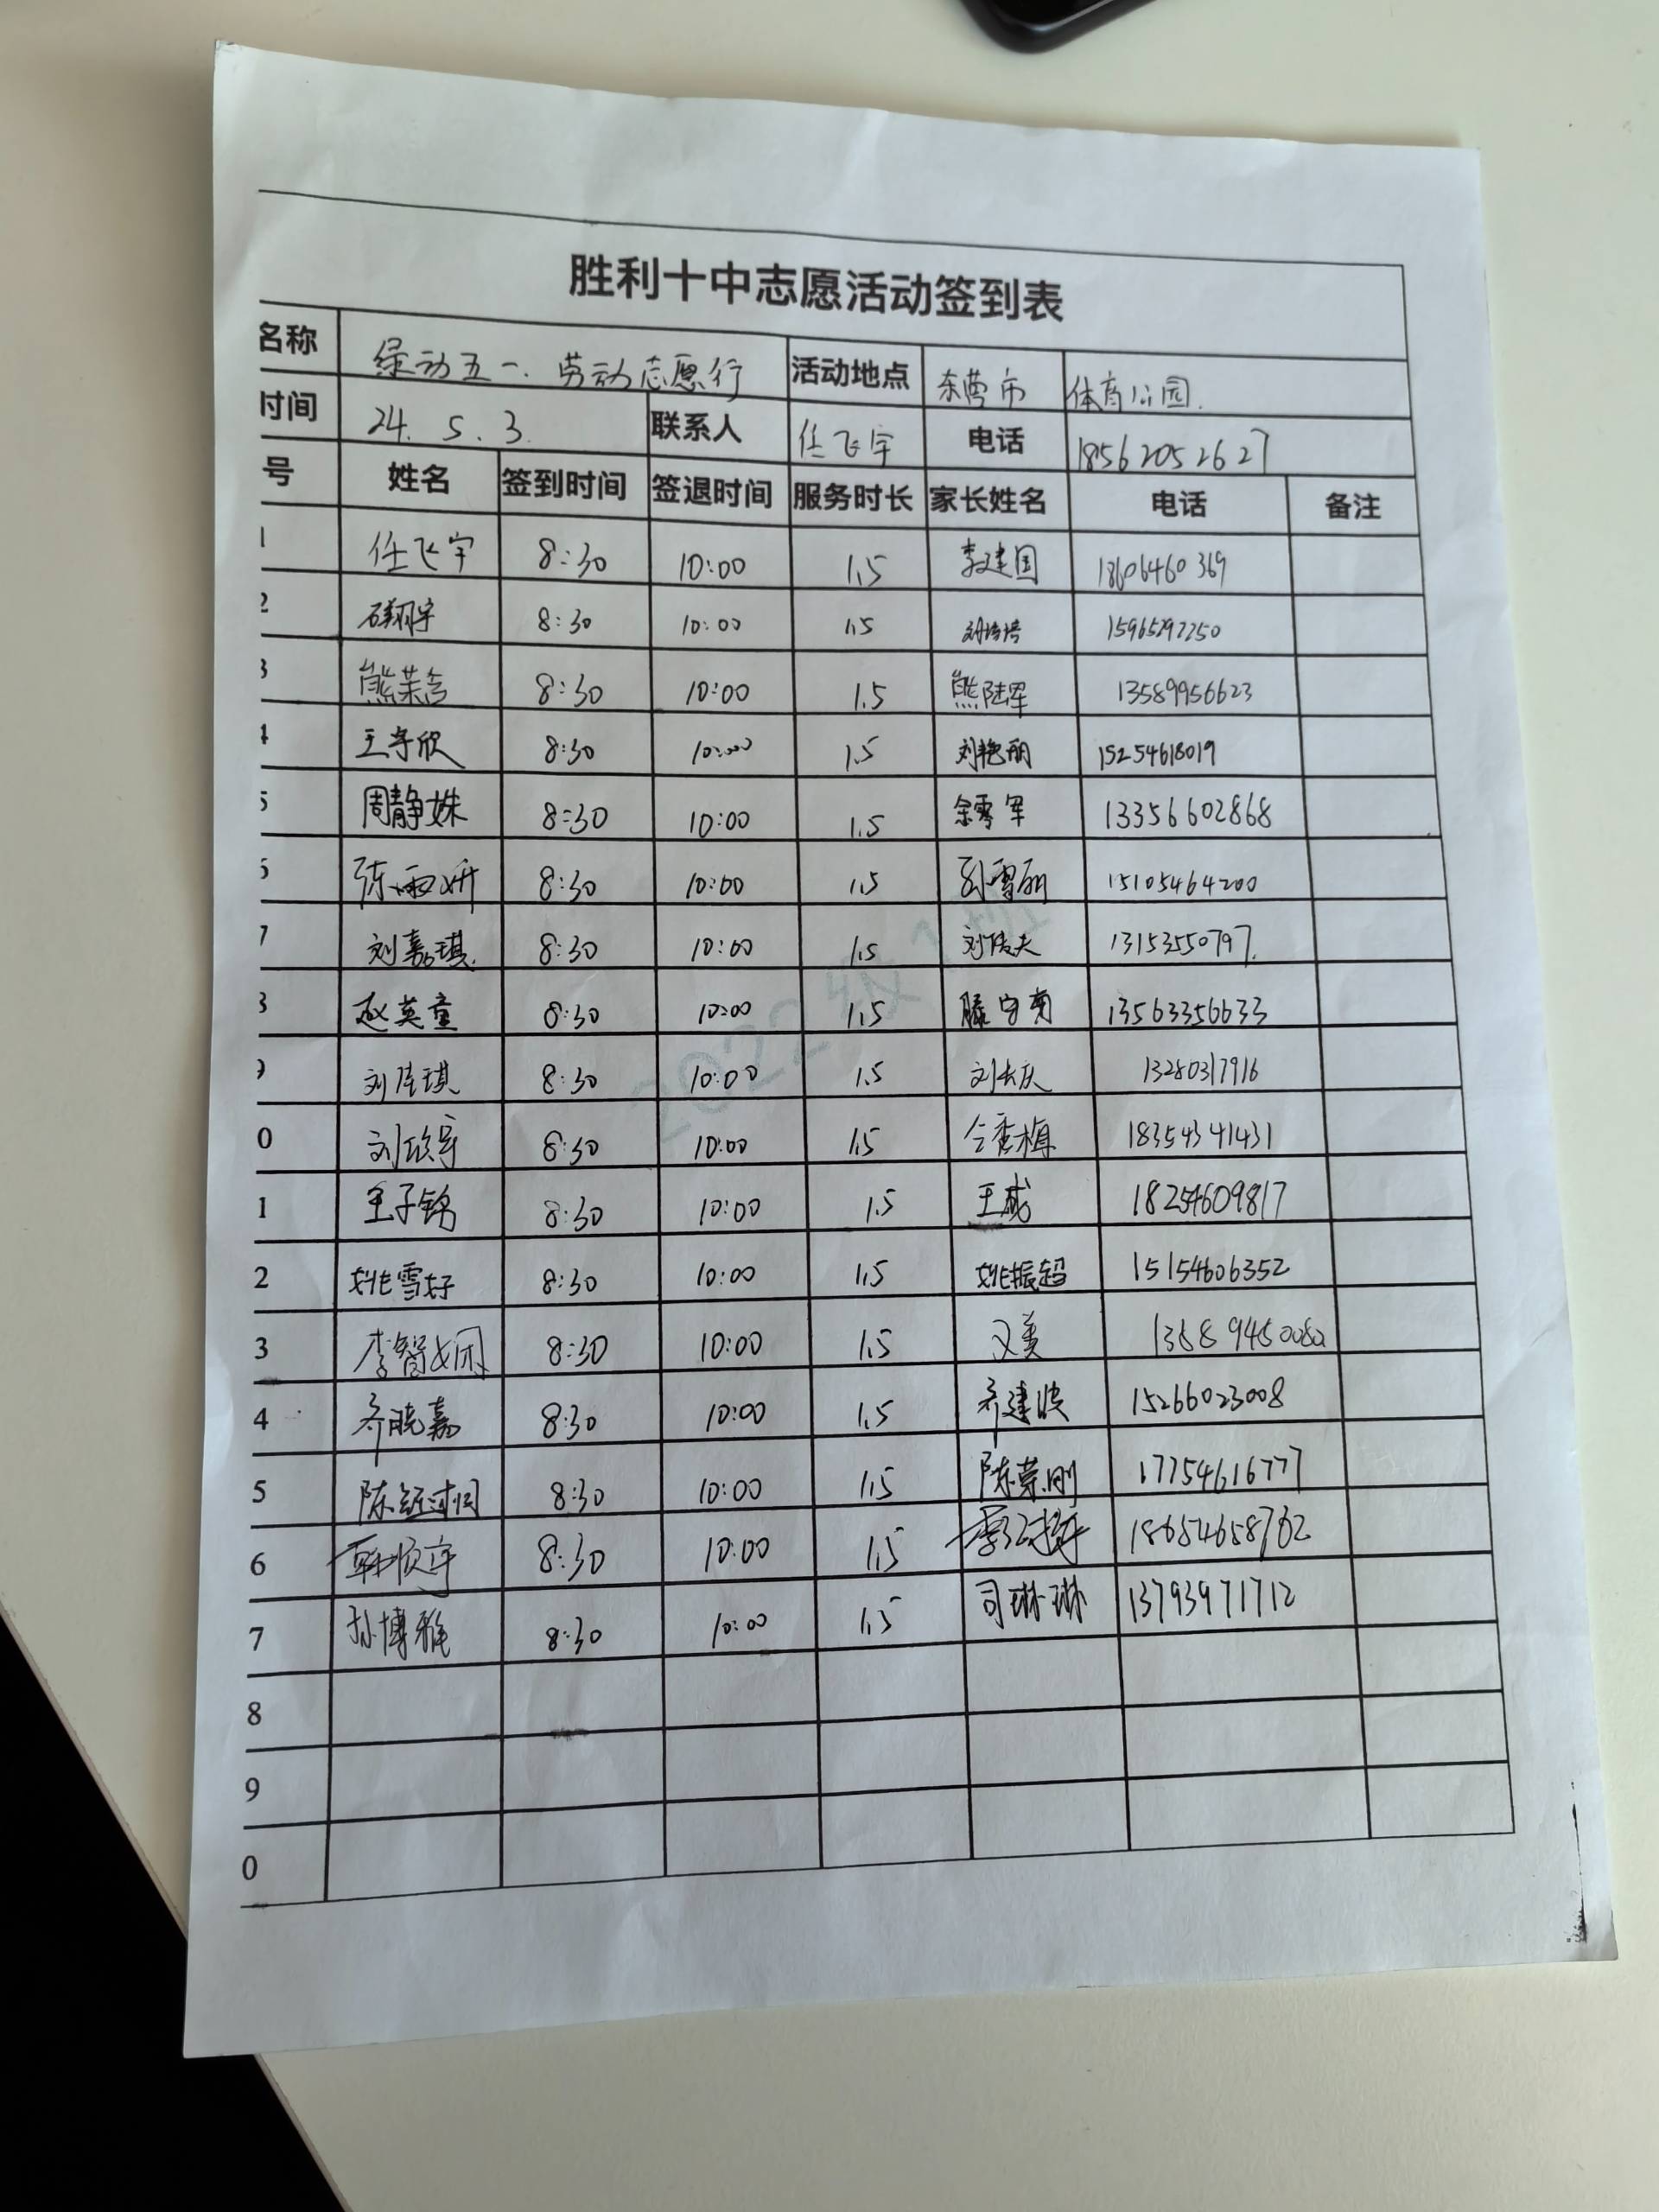 胜利十中志愿活动签到表
名称 绿动五一、劳动志愿行 活动地点 东营市 体育公园.
时间 24. 5. 3. 联系人 任飞宇 电话 18562052627
号 姓名 签到时间 签退时间 服务时长 家长姓名 电话 备注
1 任飞宇 8:30 10:00 1.5 李建国 18606460369
2 8:30 10:00 1.5 15965292250
3 熊荣含 8:30 10:00 1.5 熊陆军 13589956623
4 王宇欣 8:30 10:00 1.5 刘艳丽 15254618019
5 周静姝 8:30 10:00 1.5 13356602868
6 张雨妍 8:30 10:00 1.5 孙雪丽 15105464200
7 刘嘉琪 8:30 10:00 1.5 13153550797.
8 赵英童 8:30 10:00 1.5 滕守菊 13563356633
9 刘佳琪 8:30 10:00 1.5 刘长庆 13280317916
0 8:30 10:00 1.5 18354341431
1 王子铭 8:30 10:00 1.5 王威 18254609817
2 姚雪好 8:30 10:00 1.5 姚振超 15154606352
3 李智娴 8:30 10:00 1.5
4 齐晓嘉 8:30 10:00 1.5 齐建波 15266023008
5 8:30 10:00 1.5 陈荣刚 17754616777
6 韩顺宇 8:30 10:00 1.5 18654658762
7 孙博雅 8:30 10:00 1.5 司琳琳 13793971712
8
9
0